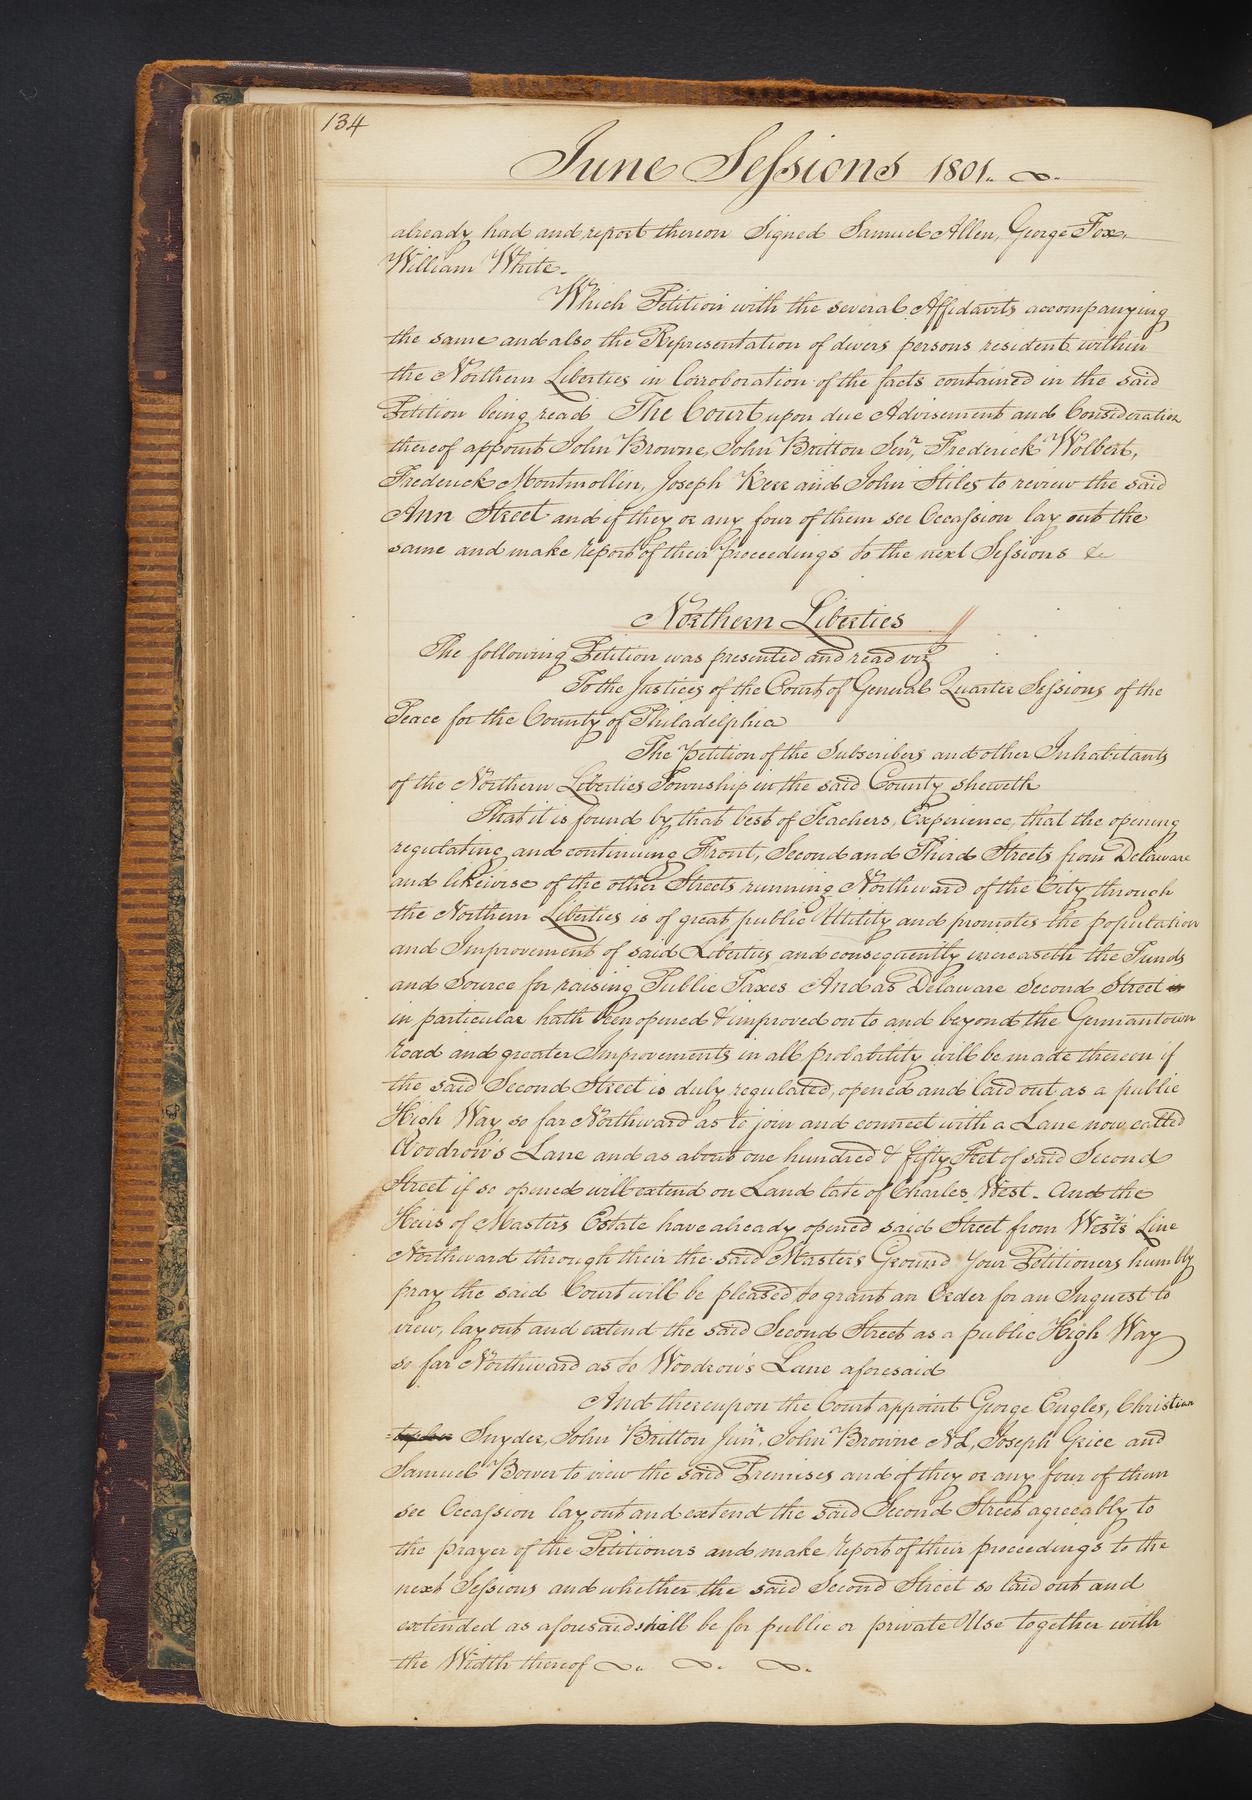 134
June Sessions 1801.
already had and report thereon Signed Samuel Allen, George Fox,
William White.
Which Petition with the several Affidavits accompanying
the same and also the Representation of divers persons resident within
the Northern Liberties in Corroboration of the facts contained in the said
Petition being read The Court upon due Advisement and Consideration
thereof appoint John Browne, John Britton Senr, Frederick Wolbert,
Frederick Montmollin, Joseph Kerr and John Stiles to review the said
Ann Street and if they or any four of them see Occassion lay out the
same and make report of their proceedings to the next Sessions &c
Northern Liberties
The following Petition was presented and read viz
To the Justices of the Court of General Quarter Sessions of the
Peace for the County of Philadelphia
The petition of the Subscribers and other Inhabitants
of the Northern Liberties Township in the said County sheweth
That it is found by that best of Teachers, Experience, that the opening
regulating and continuing Front, Second and Third Streets from Delaware
and likewise of the other Streets running Northward of the City through
the Northern Liberties is of great public Utility and promotes the population
and Improvement of said Liberties and consequently increaseth the Funds
and Source for raising Public Taxes And as Delaware Second Street in
in particular hath been opened & improved on to and beyond the Germantown
road and greater Improvements in all probability will be made thereon if
the said Second Street is duly regulated, opened and laid out as a public
High Way so far Northward as to join and connect with a Lane now called
Woodrow's Lane and as about one hundred & fifty Feet of said Second
Street if so opened will extend on Land late of Charles West. And the
Heirs of Masters Estate have already opened said Street from West's Line
Northward through their the said Master's Ground Your Petitioners humbly
pray the said Court will be pleased to grant an Order for an Inquest to
view, lay out and extend the said Second Street as a public High Way
so far Northward as to Woodrow's Lane aforesaid
And thereupon the Court appoint George Engles, Christian
Snyder, John Britton Junr, John Browne NL, Joseph Grice and
Samuel Bower to view the said Premises and if they or any four of them
see Occassion lay out and extend the said Second Street agreeably to
the prayer of the Petitioners and make report of their proceedings to the
next Sessions and whether the said Second Street so laid out and
extended as aforesaid shall be for public or private Use together with
the Width thereof